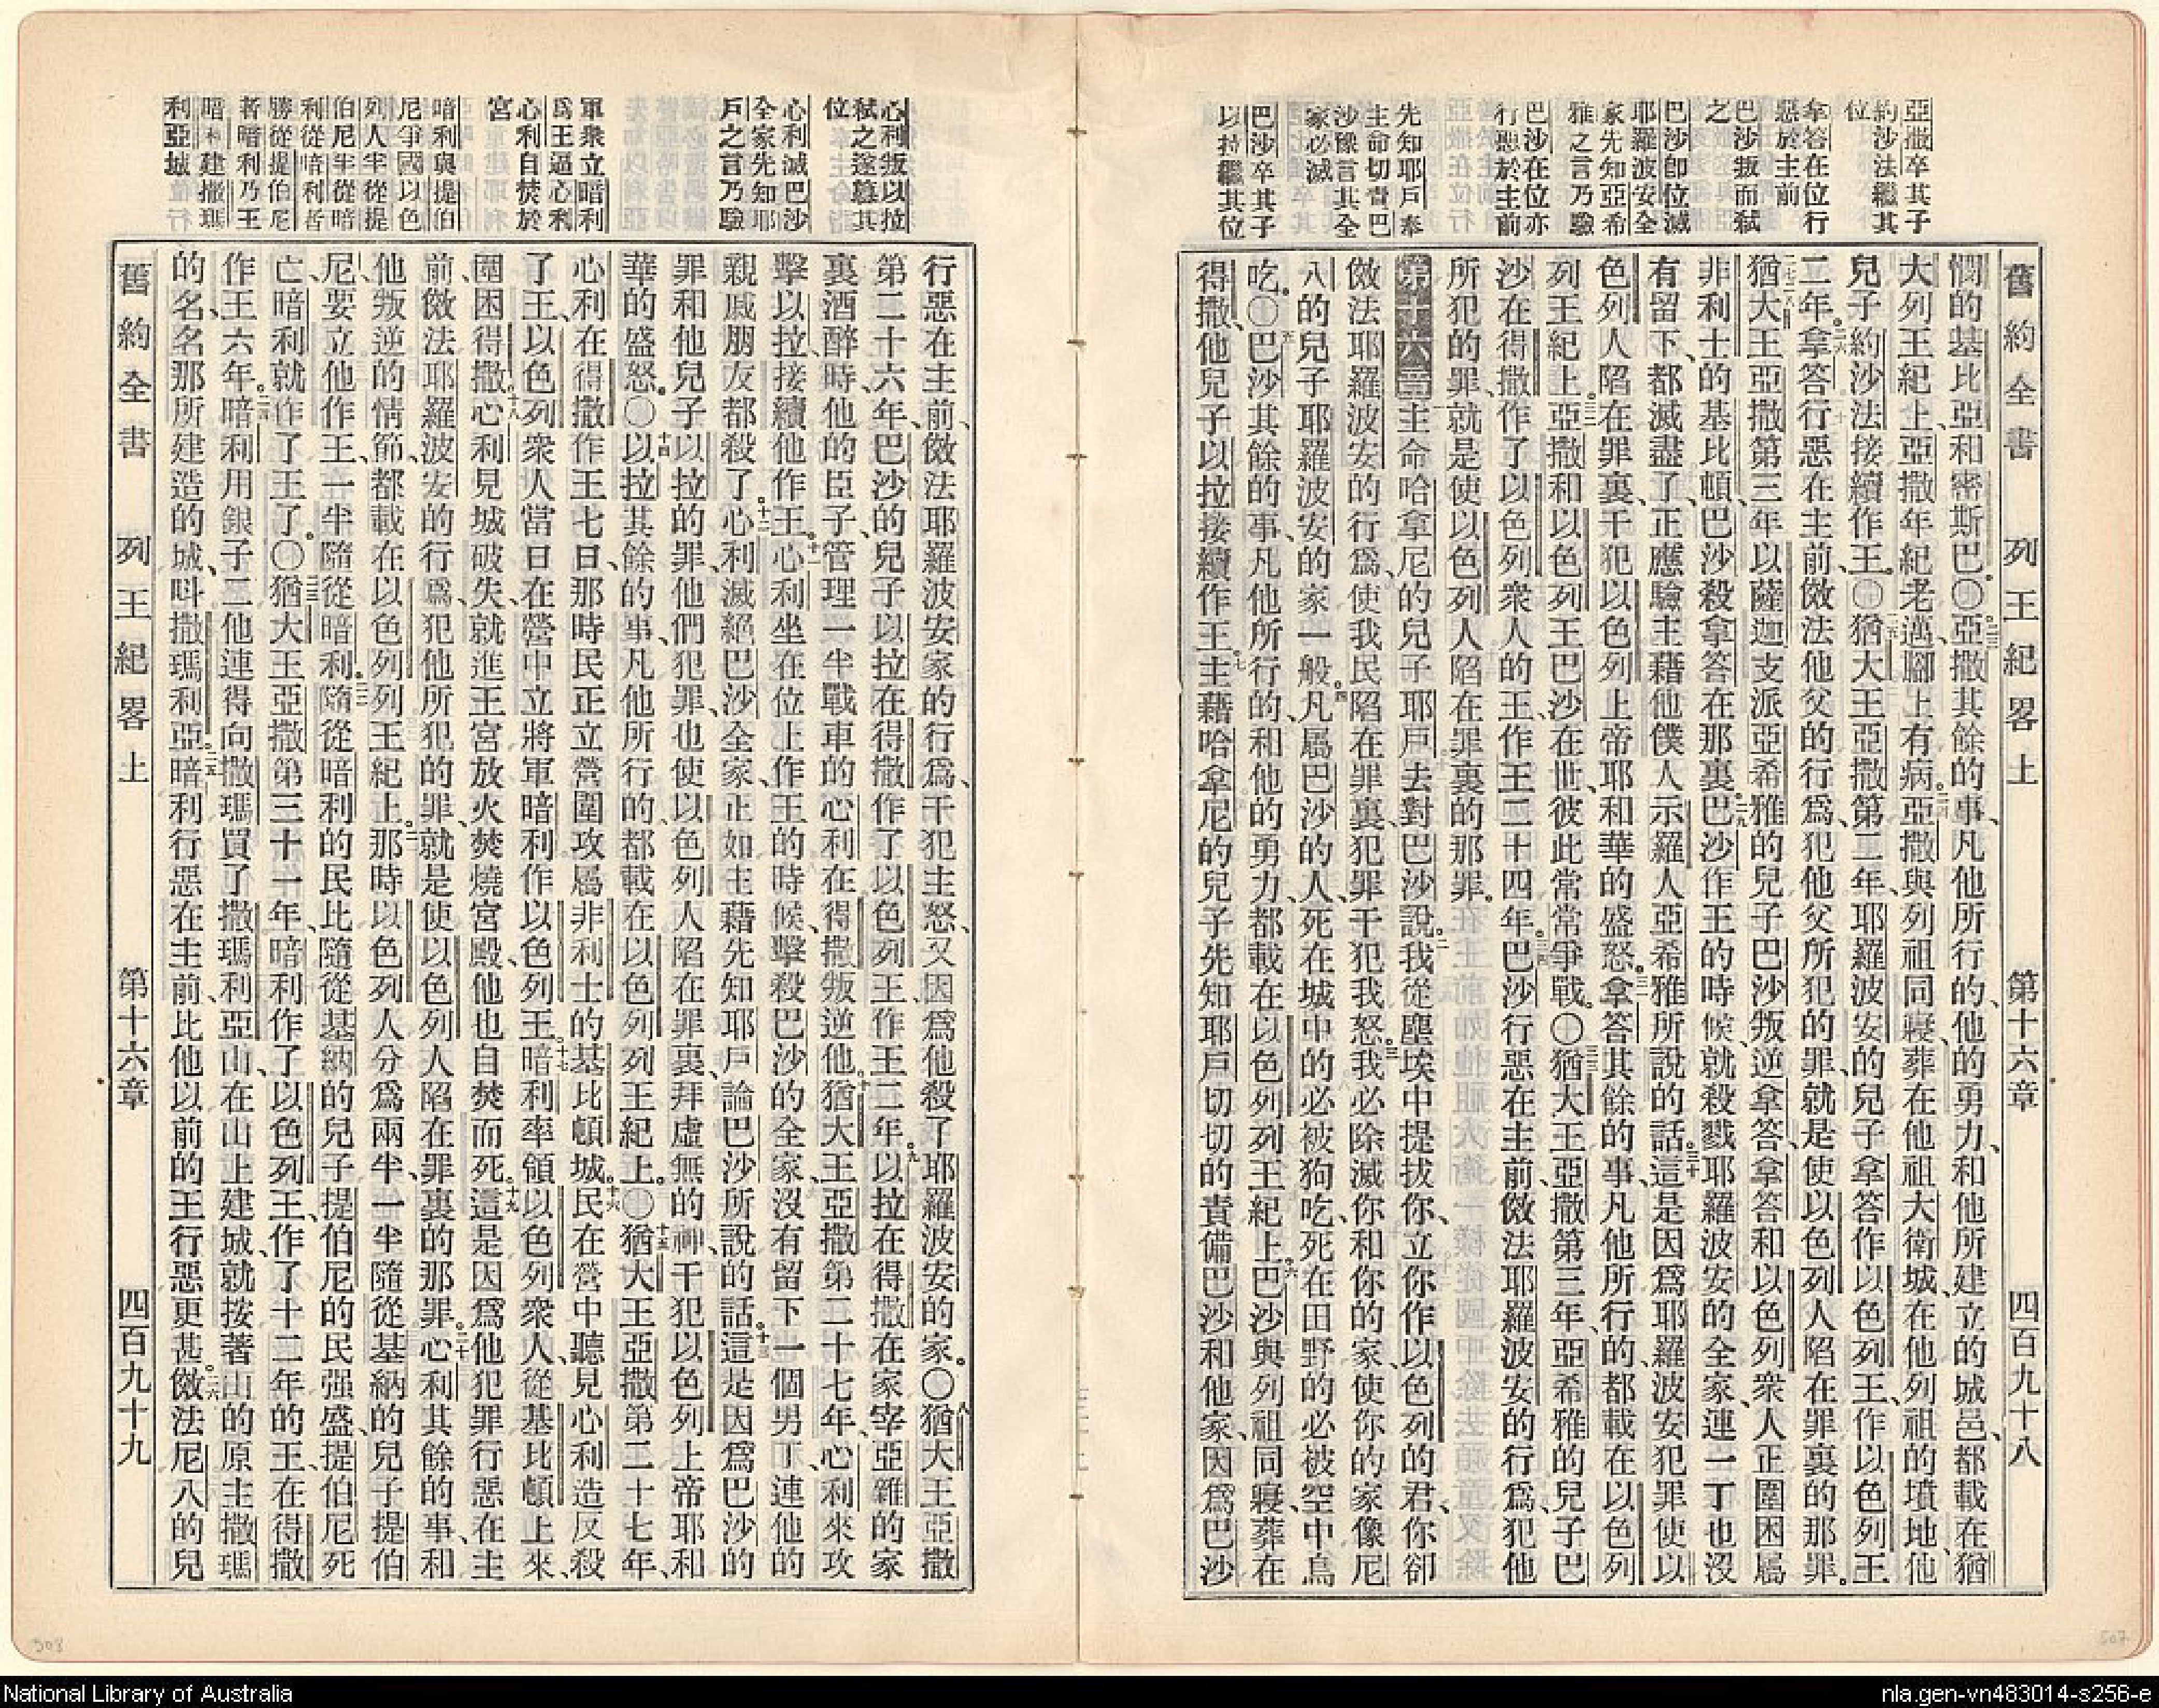 亞撒卒其子
約沙法繼其
位
拿答在位行
惡於主前
巴沙叛而弒
之
巴沙卽位滅
耶羅波安全
家先知亞希
雅之言乃驗
巴沙在位亦
行惡於主前
先知耶戶奉
主命切責巴
沙豫言其全
家必滅
巴沙卒其子
以拉繼其位
舊約全書 列王紀畧上 第十六章 四百九十八
憫的基比亞和密斯巴。〇二三亞撒其餘的事、凡他所行的、他的勇力、和他所建立的城邑、都載在猶
大列王紀上、亞撒年紀老邁、腳上有病。二四亞撒與列祖同寢、葬在他祖大衛城、在他列祖的墳地、他
兒子約沙法接續作王。〇二五猶大王亞撒第二年、耶羅波安的兒子拿答作以色列王、作以色列王
二年。二六拿答行惡在主前、傚法他父的行爲、犯他父所犯的罪、就是使以色列人陷在罪裏的那罪。
二七二八猶大王亞撒第三年、以薩迦支派亞希雅的兒子巴沙叛逆拿答、拿答和以色列衆人正圍困屬
非利士的基比頓、巴沙殺拿答在那裏。二九巴沙作王的時候、就殺戮耶羅波安的全家、連一丁也沒
有留下、都滅盡了、正應驗主藉他僕人示羅人亞希雅所說的話。三十這是因爲耶羅波安犯罪、使以
色列人陷在罪裏、干犯以色列上帝耶和華的盛怒。三一拿答其餘的事、凡他所行的、都載在以色列
列王紀上。三二亞撒和以色列王巴沙在世、彼此常常爭戰。〇三三猶大王亞撒第三年、亞希雅的兒子巴
沙在得撒作了以色列衆人的王、作王二十四年。三四巴沙行惡在主前、傚法耶羅波安的行爲、犯他
所犯的罪、就是使以色列人陷在罪裏的那罪。
第十六章一主命哈拿尼的兒子耶戶去對巴沙說、二我從塵埃中提拔你、立你作以色列的君、你卻
傚法耶羅波安的行爲、使我民陷在罪裏、犯罪干犯我怒。三我必除滅你和你的家、使你的家像尼
八的兒子耶羅波安的家一般。四凡屬巴沙的人、死在城中的必被狗吃、死在田野的必被空中鳥
吃。〇五巴沙其餘的事、凡他所行的、和他的勇力、都載在以色列列王紀上。六巴沙與列祖同寢、葬在
得撒、他兒子以拉接續作王。七主藉哈拿尼的兒子先知耶戶切切的責備巴沙和他家、因爲巴沙
心利叛以拉
弒之遂簒其
位
心利滅巴沙
全家先知耶
戶之言乃驗
軍衆立暗利
爲王逼心利
心利自焚於
宮
暗利與提伯
尼爭國以色
列人半從提
伯尼半從暗
利從暗利者
勝從提伯尼
者暗利乃王
暗利建撒瑪
利亞城
行惡在主前、傚法耶羅波安家的行爲、干犯主怒、又因爲他殺了耶羅波安的家。〇八猶大王亞撒
第二十六年、巴沙的兒子以拉在得撒作了以色列王、作王二年。九以拉在得撒在家宰亞雜的家
裏酒醉時、他的臣子、管理一半戰車的心利在得撒叛逆他。十猶大王亞撒第二十七年、心利來攻
擊以拉、接續他作王。十一心利坐在位上、作王的時候、擊殺巴沙的全家、沒有留下一個男丁、連他的
親戚朋友都殺了。十二心利滅絕巴沙全家、正如主藉先知耶戶論巴沙所說的話。十三這是因爲巴沙的
罪和他兒子以拉的罪、他們犯罪、也使以色列人陷在罪裏、拜虛無的神、干犯以色列上帝耶和
華的盛怒。〇十四以拉其餘的事、凡他所行的、都載在以色列列王紀上。〇十五猶大王亞撒第二十七年、
心利在得撒作王七日、那時民正立營圍攻屬非利士的基比頓城。十六民在營中聽見心利造反殺
了王、以色列衆人當日在營中立將軍暗利作以色列王。十七暗利率領以色列衆人、從基比頓上來、
圍困得撒。十八心利見城破失、就進王宮放火焚燒宮殿、他也自焚而死。十九這是因爲他犯罪行惡在主
前、傚法耶羅波安的行爲、犯他所犯的罪、就是使以色列人陷在罪裏的那罪。二十心利其餘的事、和
他叛逆的情節、都載在以色列列王紀上。二一那時以色列人分爲兩半、一半隨從基納的兒子提伯
尼、要立他作王、一半隨從暗利。二二隨從暗利的民比隨從基納的兒子提伯尼的民强盛、提伯尼死
亡、暗利就作了王了。〇二三猶大王亞撒第三十一年、暗利作了以色列王、作了十二年的王、在得撒
作王六年。二四暗利用銀子二他連得向撒瑪買了撒瑪利亞山、在山上建城、就按著山的原主撒瑪
的名、名那所建造的城、呌撒瑪利亞。二五暗利行惡在主前、比他以前的王行惡更甚。二六傚法尼八的兒
舊約全書 列王紀畧上 第十六章 四百九十九
508
507
National Library of Australia
nla.gen-vn483014-s256-e